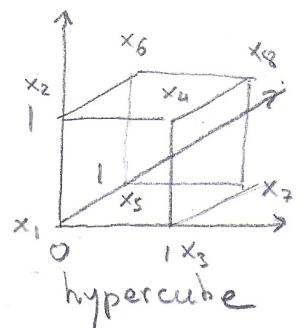 x6
x8
x2
x4
1
1
x5
x7
x1
0
1 x3
hypercube